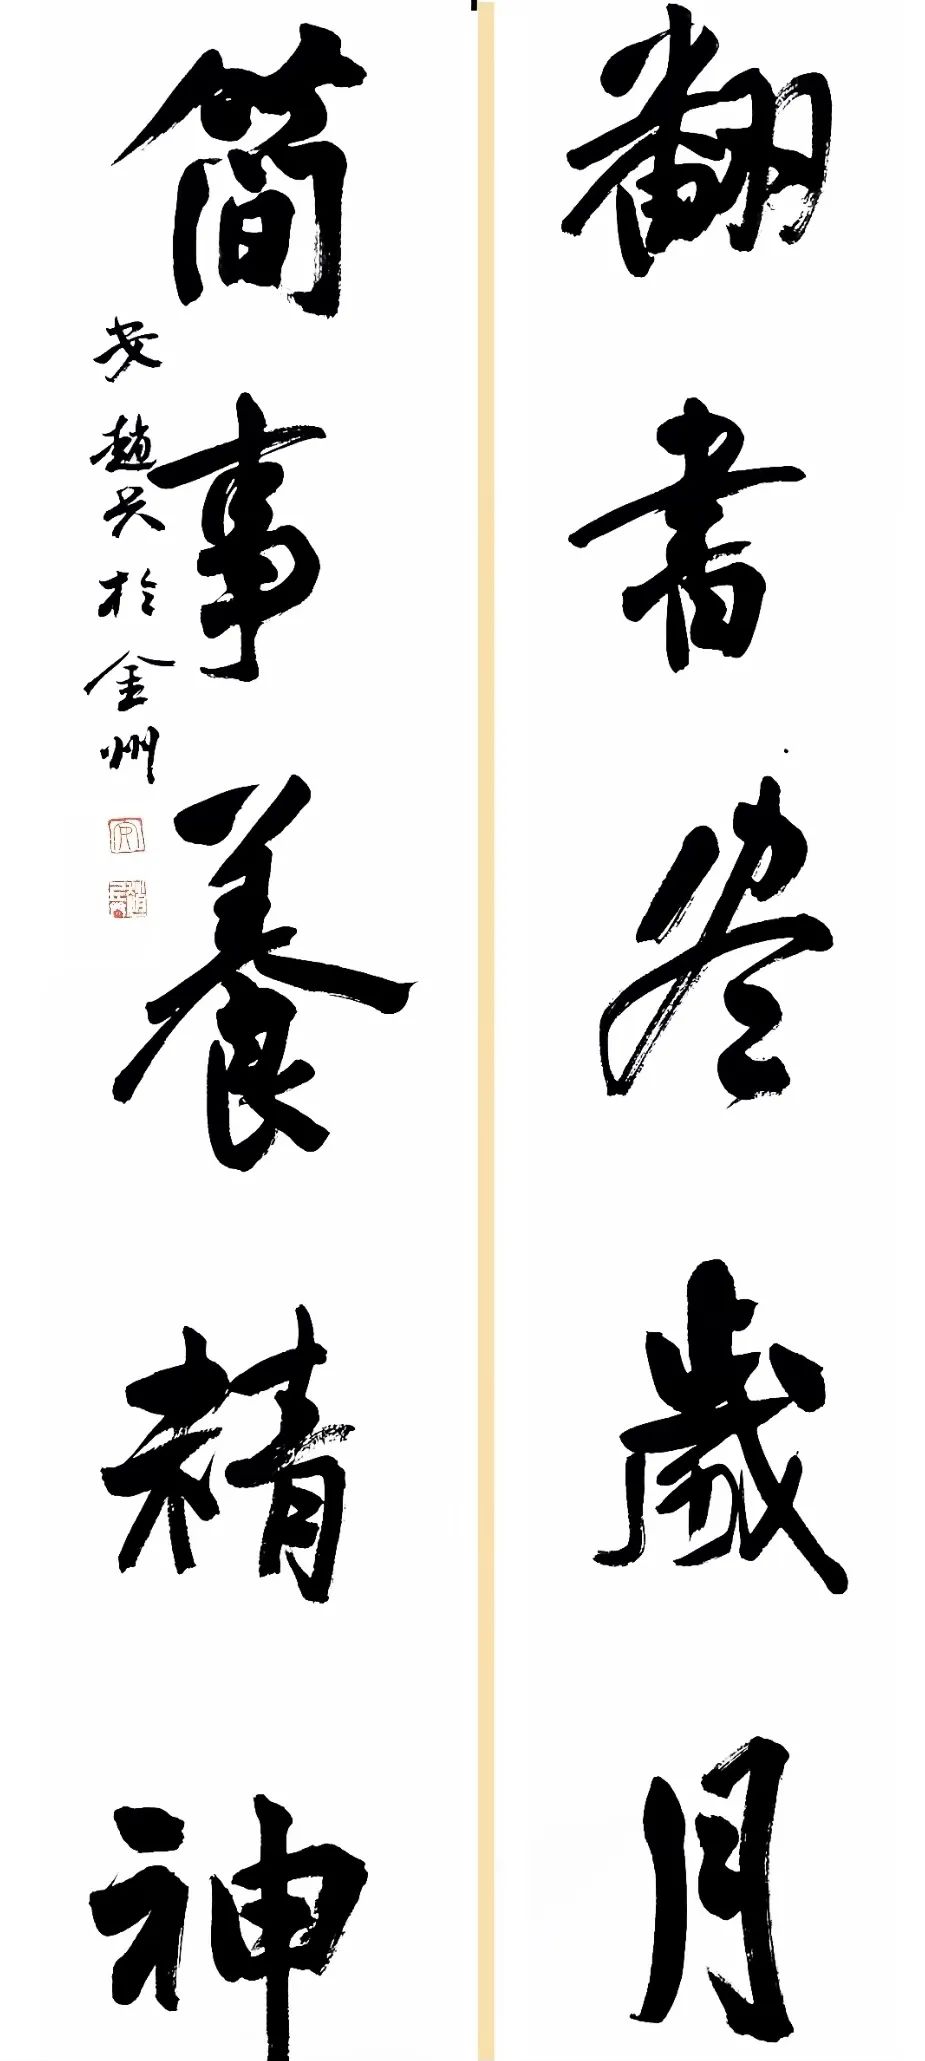 翻書尽歲月
簡事養精神
安趙兴於金州